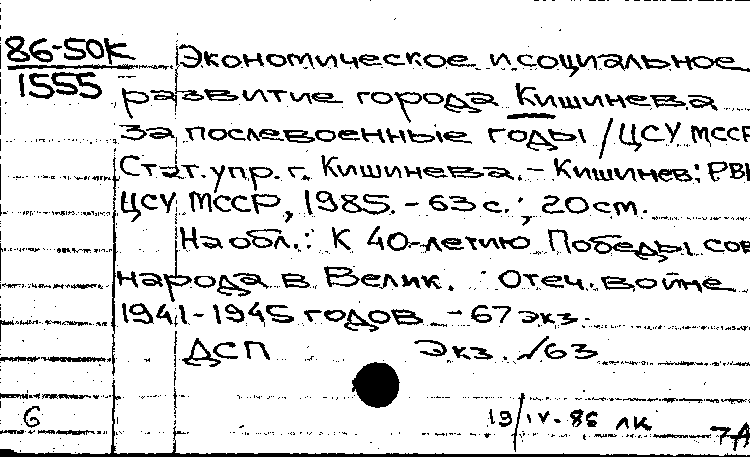 86-50К
1555
Экономическое и социальное
развитие города Кишинева
за послевоенные годы / ЦСУ МССР
Стат. упр. г. Кишинева. - Кишинев:
ЦСУ МССР, 1985. - 63 с.; 20 см.
На обл.: К 40-летию Победы сов
народа в Велик. Отеч. войне
1941-1945 годов - 67 экз.
ДСП Экз. √63
6 19/IV-86 лк
7А